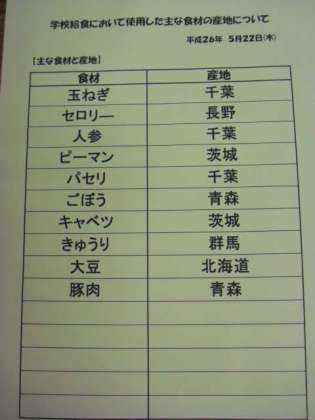 学校給食において使用した主な食材の産地について
平成26年 5月22日(木)
【主な食材と産地】
食材 産地
玉ねぎ 千葉
セロリー 長野
人参 千葉
ピーマン 茨城
パセリ 千葉
ごぼう 青森
キャベツ 茨城
きゅうり 群馬
大豆 北海道
豚肉 青森